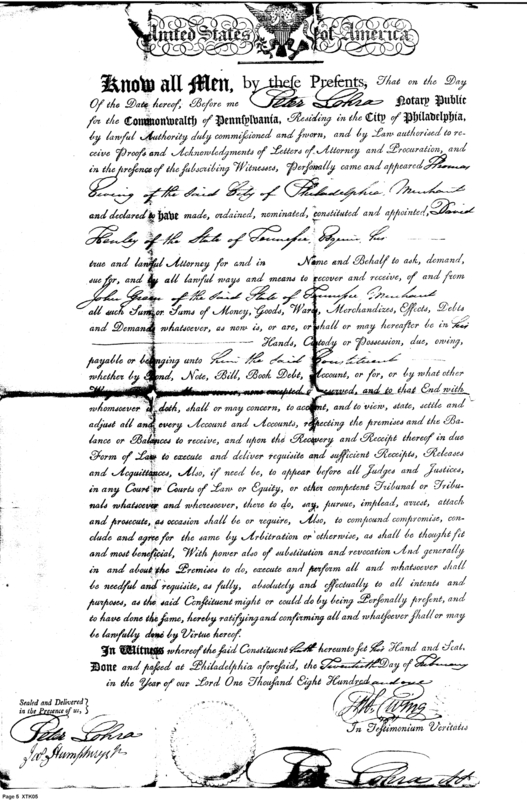 United States of America
Know all Men, by these Presents, That on the Day
Of the Date hereof, Before me Peter Lohra Notary Public
for the Commonwealth of Pennsylvania, Residing in the City of Philadelphia,
by lawful Authority duly commissioned and sworn, and by Law authorised to re-
ceive Proofs and Acknowledgments of Letters of Attorney and Procuration, and
in the presence of the subscribing Witnesses, Personally came and appeared Thomas
Ewing of the said City of Philadelphia Merchant
and declared to have made, ordained, nominated, constituted and appointed, David
Henley of the State of Tennessee Esquire his
true and lawful Attorney for and in Name and Behalf to ask, demand,
sue for, and by all lawful ways and means to recover and receive, of and from
John Green of the said State of Tennessee Merchant
all such Sum or Sums of Money, Goods, Wares, Merchandizes, Effects, Debts
and Demands whatsoever, as now is, or are, or shall or may hereafter be in his
Hands, Custody or Possession, due, owing,
payable or belonging unto him the said Constituent
whether by Bond, Note, Bill, Book Debt, Account, or for, or by what other
reserved, and to that End with
whomsoever it doth, shall or may concern, to account, and to view, state, settle and
adjust all and every Account and Accounts, respecting the premises and the Ba-
lance or Balances to receive, and upon the Recovery and Receipt thereof in due
Form of Law to execute and deliver requisite and sufficient Receipts, Releases
and Acquittances, Also, if need be, to appear before all Judges and Justices,
in any Court or Courts of Law or Equity, or other competent Tribunal or Tribu-
nals whatsoever and wheresoever, there to do, say, pursue, implead, arrest, attach
and prosecute, as occasion shall be or require, Also, to compound compromise, con-
clude and agree for the same by Arbitration or otherwise, as shall be thought fit
and most beneficial, With power also of substitution and revocation And generally
in and about the Premises to do, execute and perform all and whatsoever shall
be needful and requisite, as fully, absolutely and effectually to all intents and
purposes, as the said Constituent might or could do by being Personally present, and
to have done the same, hereby ratifying and confirming all and whatsoever shall or may
be lawfully done by Virtue hereof.
In Witness whereof the said Constituent hath hereunto set his Hand and Seal.
Done and passed at Philadelphia aforesaid, the Twentieth Day of February
in the Year of our Lord One Thousand Eight Hundred and one
Sealed and Delivered
in the Presence of us,
Thos. Ewing
In Testimonium Veritatis
Peter Lohra
Jos. Humphreys
Peter Lohra
Page 5 XTK05